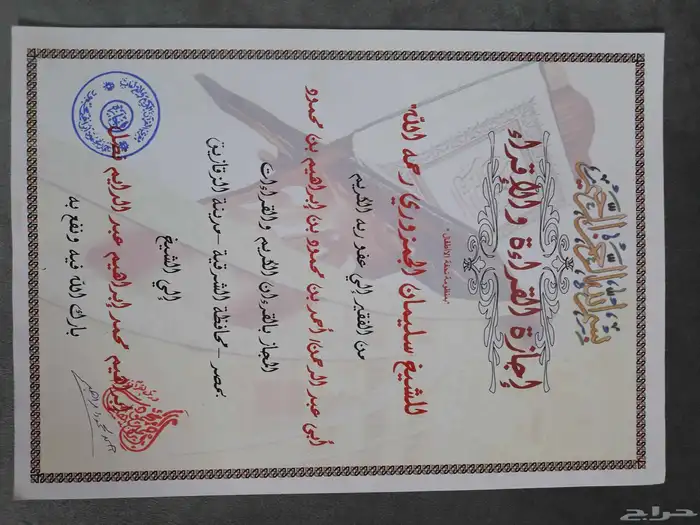 بسم الله الرحمن الرحيم
إجازة القراءة والإقراء
بمنظومة تحفة الأطفال
للشيخ سليمان الجمزوري رحمه الله
من الفقير إلي عفو ربه الكريم
أبي عبد الرحمن/ أحمد بن محمود بن إبراهيم بن محمود
المجاز بالقرءان الكريم والقراءات
بمصر - محافظة الشرقية - مدينة الزقازيق
إلي الشيخ
إبراهيم محمد إبراهيم عبد الدايم
بارك الله فيه ونفع به
حراج